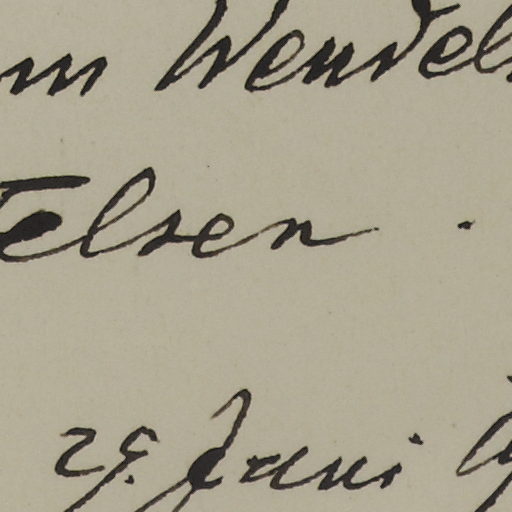 m Wendel
Telsen.
29. Juni